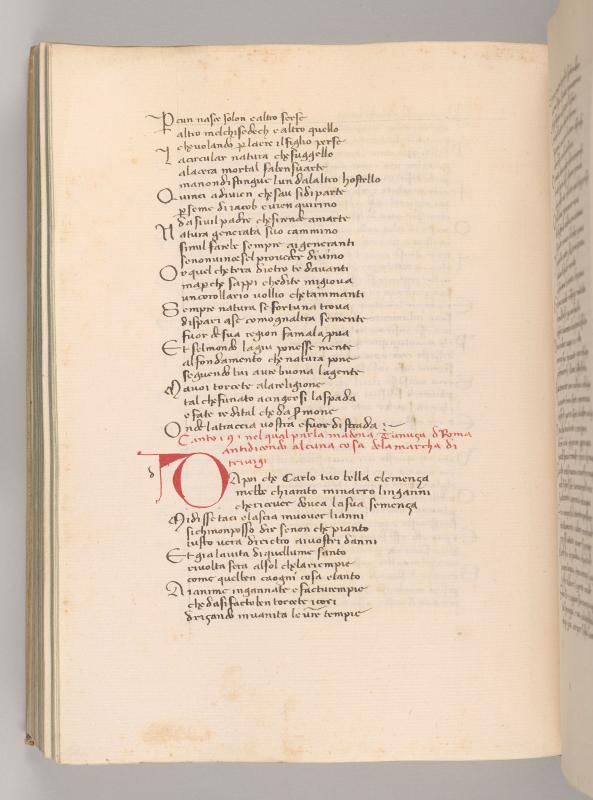 P cun nasce solon e altro serse
altro melchisedech e altro quello
che volando p laere il figlio perse
L a circular natura che suggello
ala cera mortal fa ben su arte
ma non distingue lun dalaltro hostello
Q uinci adivien che sau si diparte
p seme di iacob e vien quirino
da si vil padre che si rende a marte
N atura generata suo cammino
simil farebe sempre ai generanti
se non vincesel proveder divino
O r quel che tera dietro te davanti
ma p che sappi che di te mi giova
un corollario voglio che tammanti
S empre natura se fortuna trova
di spari a se com ogn altra semente
fuor de sua region fa mala pua
E t sel mondo la giu ponesse mente
al fondamento che natura pone
seguendo lui avre buona la gente
M a voi torcete ala religione
tal che fu nato a cingersi la spada
e fate re di tal che da s mone
O nde la traccia vostra e fuor di strada
Canto 191 nel qual parla madona Cunuça d Roma
antidicendo alcuna cosa de la marcha di
trivigi
d
DA poi che Carlo tuo bella clemença
mebbe chiarato mi narro linganni
che ricever dovea la sua semença
M a disse taci e lascia muover lianni
si chi non posso dir se non che pianto
iusto vera dirietro ai vostri danni
E t gia la vita di quel lume santo
rivolta sera al sol che la riempie
come quel ben ca ogni cosa e tanto
A i anime ingannate e facture mpie
che da si facto ben torcete i cori
driçando in vanita le vre tempie